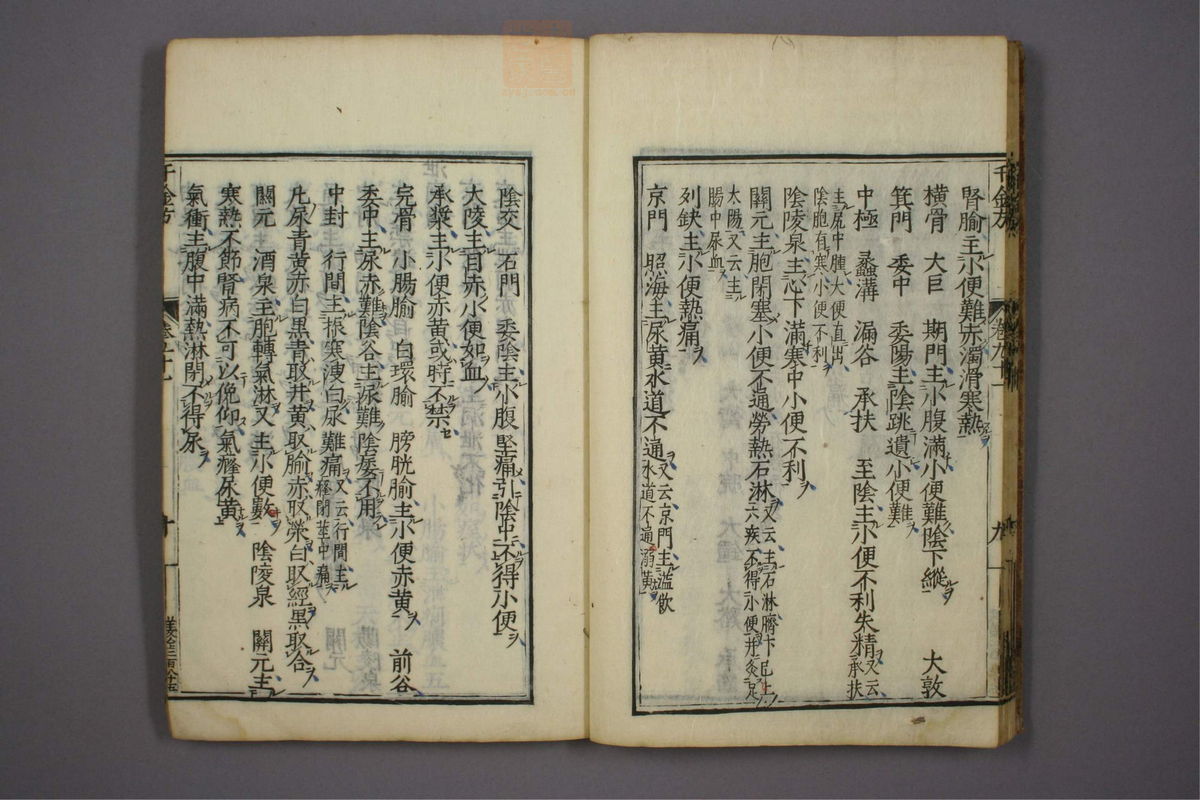 腎腧主小便難赤濁滑寒熱
橫骨　大巨　期門主小腹滿小便難陰下縱　大敦
箕門　委中　委陽主陰跳遺小便難
中極　蠡溝　漏谷　承扶　至陰主小便不利失精又云承扶
主尻中腫大便直出
陰胞有寒小便不利
陰陵泉主心下滿寒中小便不利
關元主胞閉塞小便不通勞熱石淋又云主石淋臍下
六疾不得小便并灸足
太陽又云主
腸中尿血
列缺主小便熱痛
京門　照海主尿黃水道不通又云京門主溢飲
水道不通溺黃
千金方
陰交　石門　委陰主小腹堅痛引陰中不得小便
大陵主目赤小便如血
承漿主小便赤黃或時不禁
完骨　小腸腧　白環腧　膀胱腧主小便赤黃　前谷
委中主尿赤難陰谷主尿難陰痿不用
中封　行間主振寒溲白尿難痛又云行間主
癃閉莖中痛
凡尿青黃赤白黑青取井黃取腧赤取滎白取經黑取合
關元　涌泉主胞轉氣淋又主小便數　陰陵泉　關元主
寒熱不節腎病不可以俛仰氣癃尿黃
氣衝主腹中滿熱淋閉不得尿
千金方